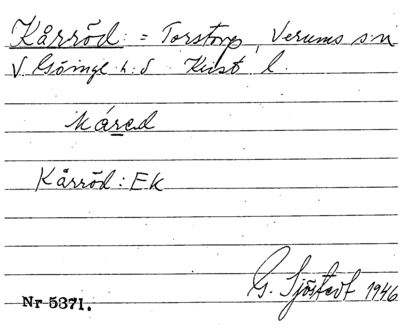 Kårröd = Torstorp, Verums s:n
V. Göinge h:d Krist l.
kåred
Kårröd: EK
G. Sjöstedt 1946
Nr 5371.